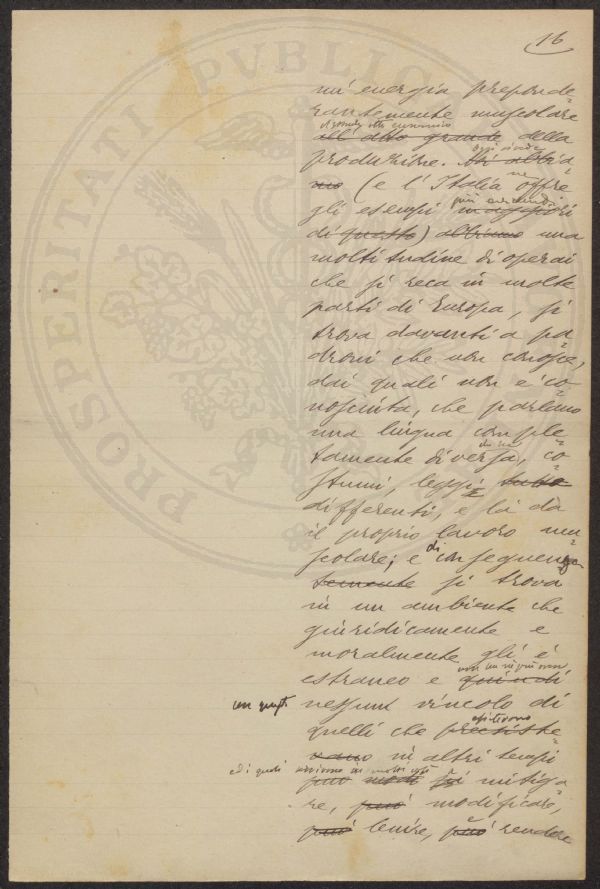 16
un'energia preponde=
rantemente muscolare
all' alto grande della
produzione. Oggi
(e l'Italia ne offre
gli esempi più
di questo) abbiamo una
moltitudine di operai
che si reca in molte
parti di Europa, si
trova davanti a pa=
droni che non conosce,
dai quali non è co=
nosciuta, che parlano
una lingua comple=
tamente diversa, co=
stumi, leggi
differenti, e là dà
il proprio lavoro mu=
scolare; e di conseguenza
si trova
in un ambiente che
giuridicamente e
moralmente gli è
estraneo e quindi
nessun vincolo di
quelli che esistevano
in altri tempi
può mitiga=
re, può modificare,
può lenire, può rendere
PROSPERITATI PVBLICAE